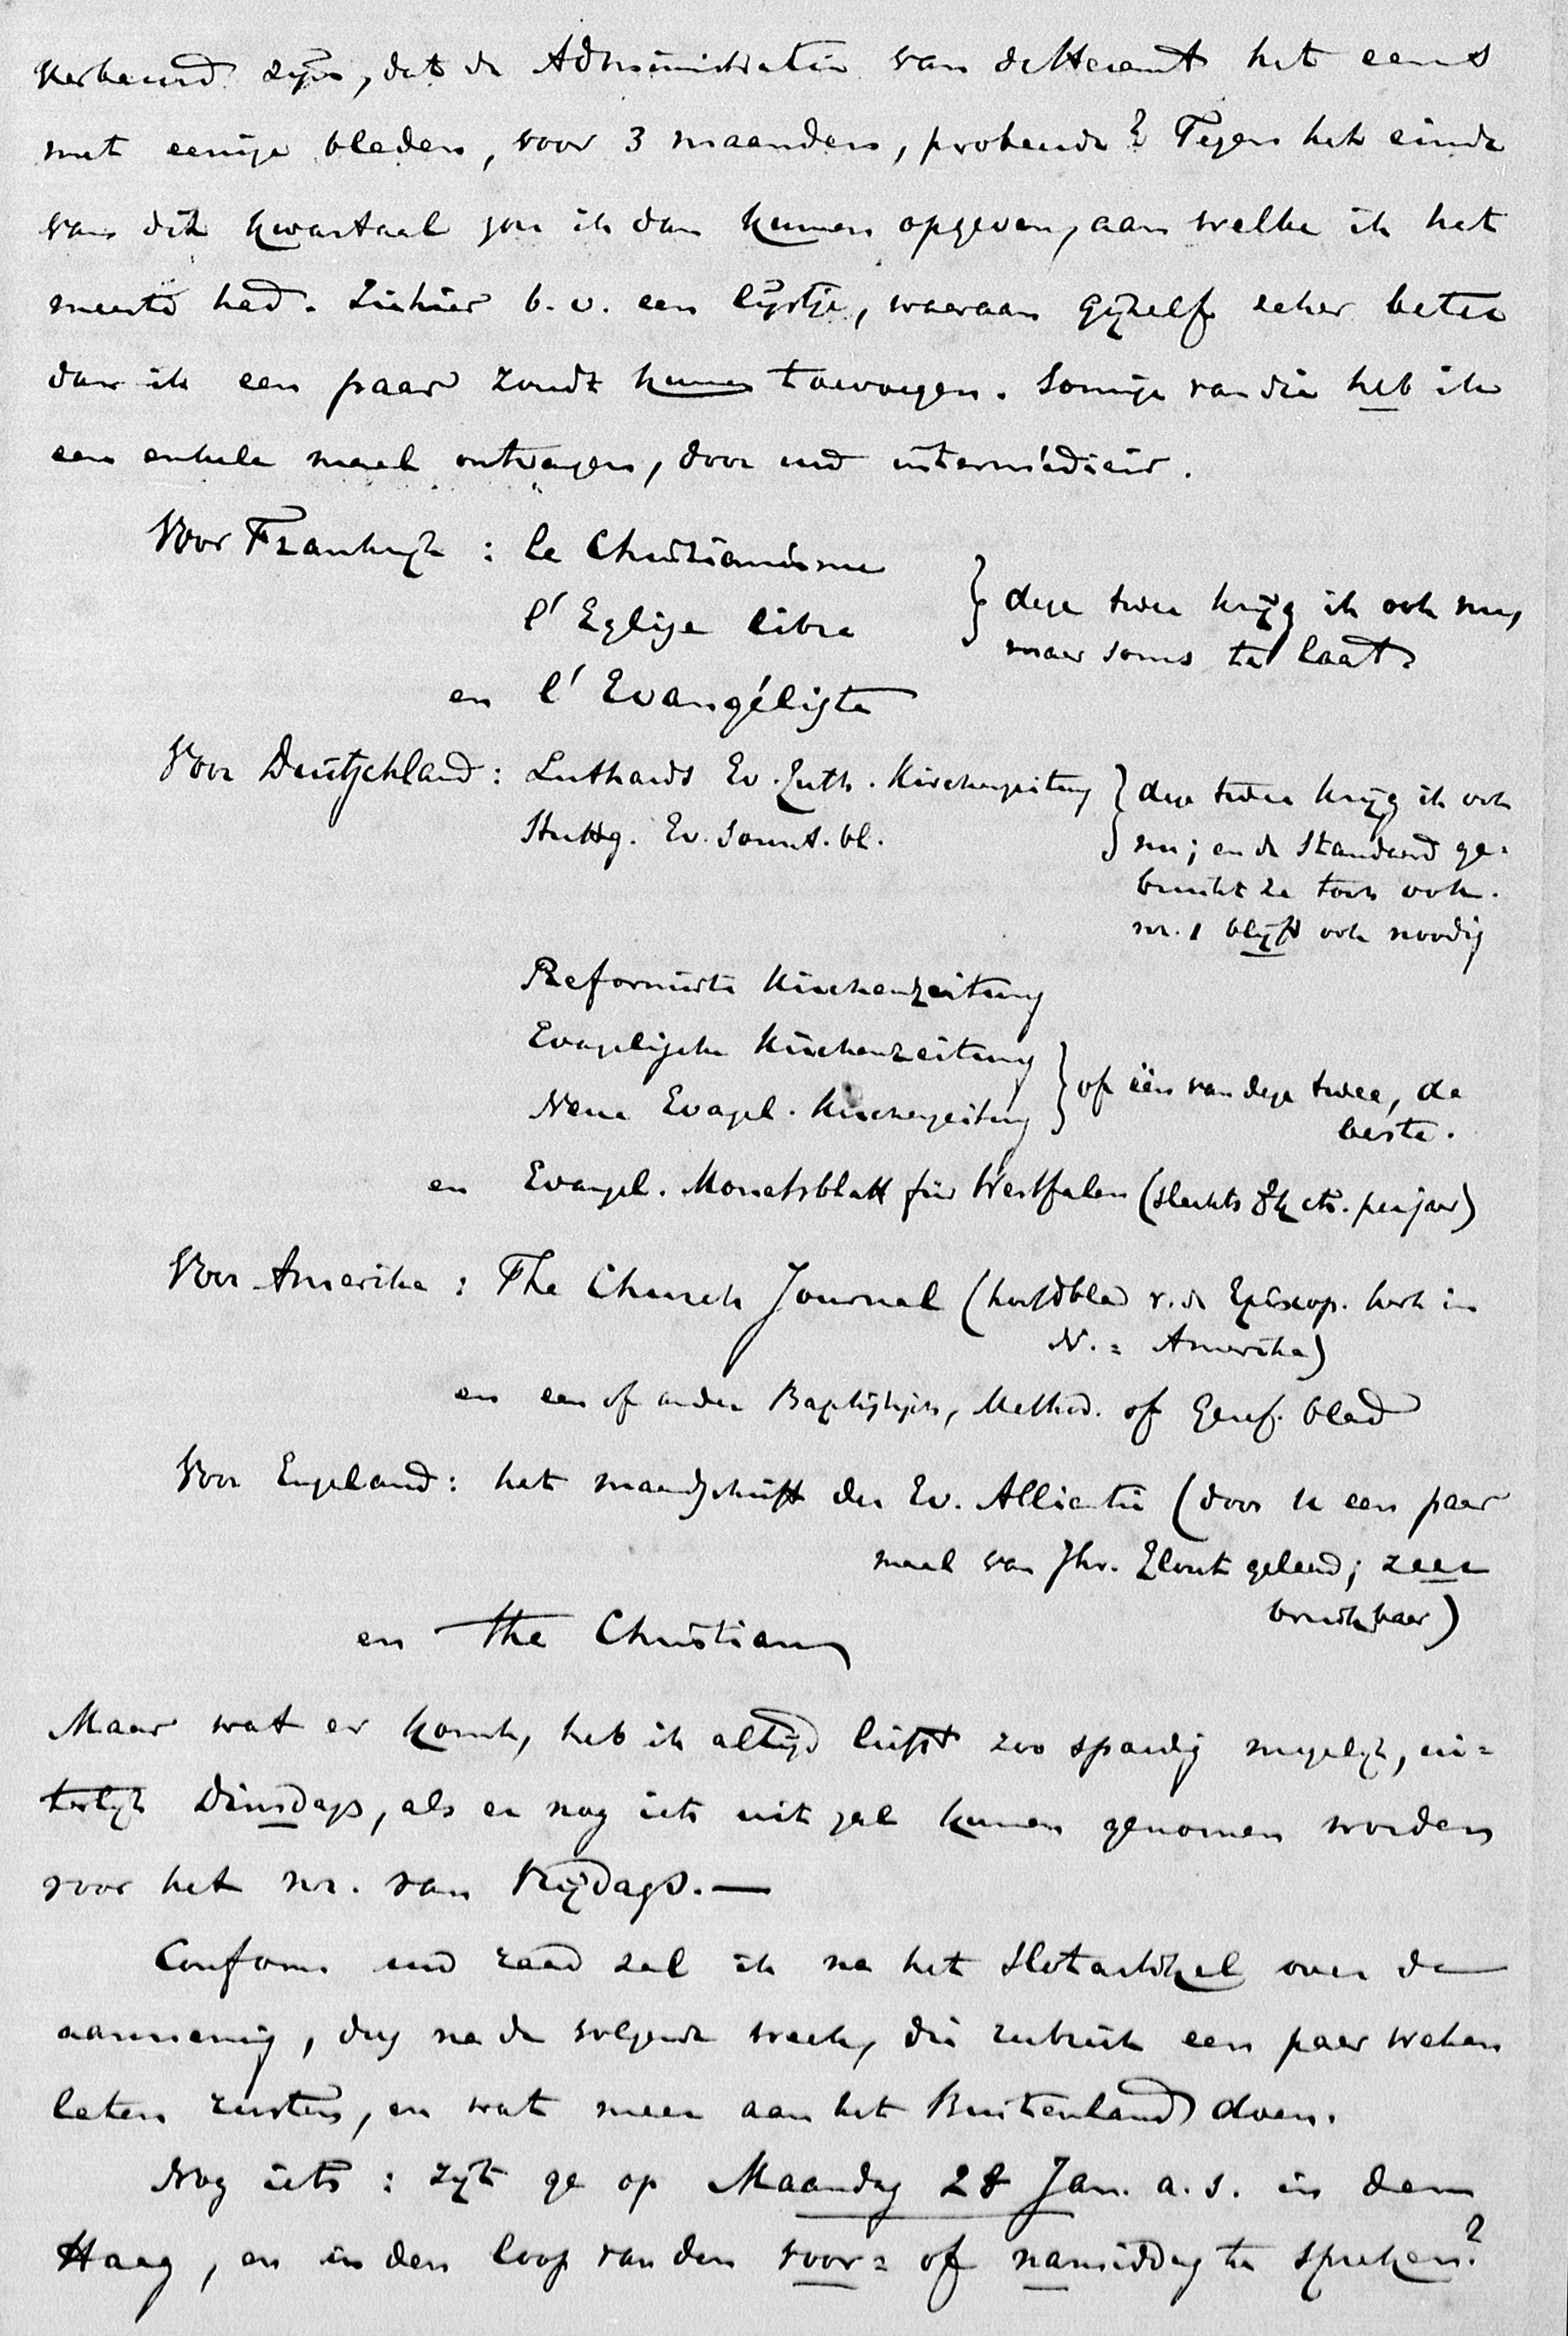 verkeerd zijn, dat de Administratie van de Heraut het eens
met eenige bladen, voor 3 maanden, probeerde? Tegen het einde
van dit kwartaal zou ik dan kunnen opgeven, aan welke ik het
meeste had. Ziehier b.v. een lijstje, waaraan gijzelf zeker beter
dan ik een paar zoudt kunnen toevoegen. Sommige van die heb ik
een enkele maal ontvangen, door uwd intermédiair.
Voor Frankrijk : le Christianisme
l'Eglise libre
} deze twee krijg ik ook nu,
maar soms te laat.
en l'Evangéliste
Voor Deutschland : Luthards Ev. Luth. Kirchenzeitung
Stuttg. Ev. Sonnt. bl.
} deze twee krijg ik ook
nu; en de Standaard ge-
bruikt ze toch ook.
nr. 1 blijft ook noodig
Reformirte Kirchenzeitung
Evagelische Kirchenzeitung
Neue Evagel. Kirchenzeitung
} of één van deze twee, de
beste.
en Evangel. Monatsblatt für Westfalen (slechts cts. per jaar)
Voor Amerika : The Church Journal (hoofdblad v. de Episcop. kerk in
N.= Amerika)
en een of ander Baptistisch, Method. of Geref. blad
Voor Engeland : het maandschrift der Ev. Alliantie (door U een paar
maal van Jhr. Elout geleend; zeer
bruikbaar)
en The Christian
Maar wat er komt, heb ik altijd liefst zoo spoedig mogelijk, ui=
terlijk Dinsdags, als er nog iets uit zal kunnen genomen worden
voor het nr. van Vrijdags.—
Conform uwd raad zal ik na het slotartikel over de
aanneming, dus na de volgende week, die rubriek een paar weken
laten rusten, en wat meer aan het Buitenland doen.
Nog iets : zijt ge op Maandag 28 Jan. a.s. in den
Haag, en in den loop van den voor= of namiddag te spreken?